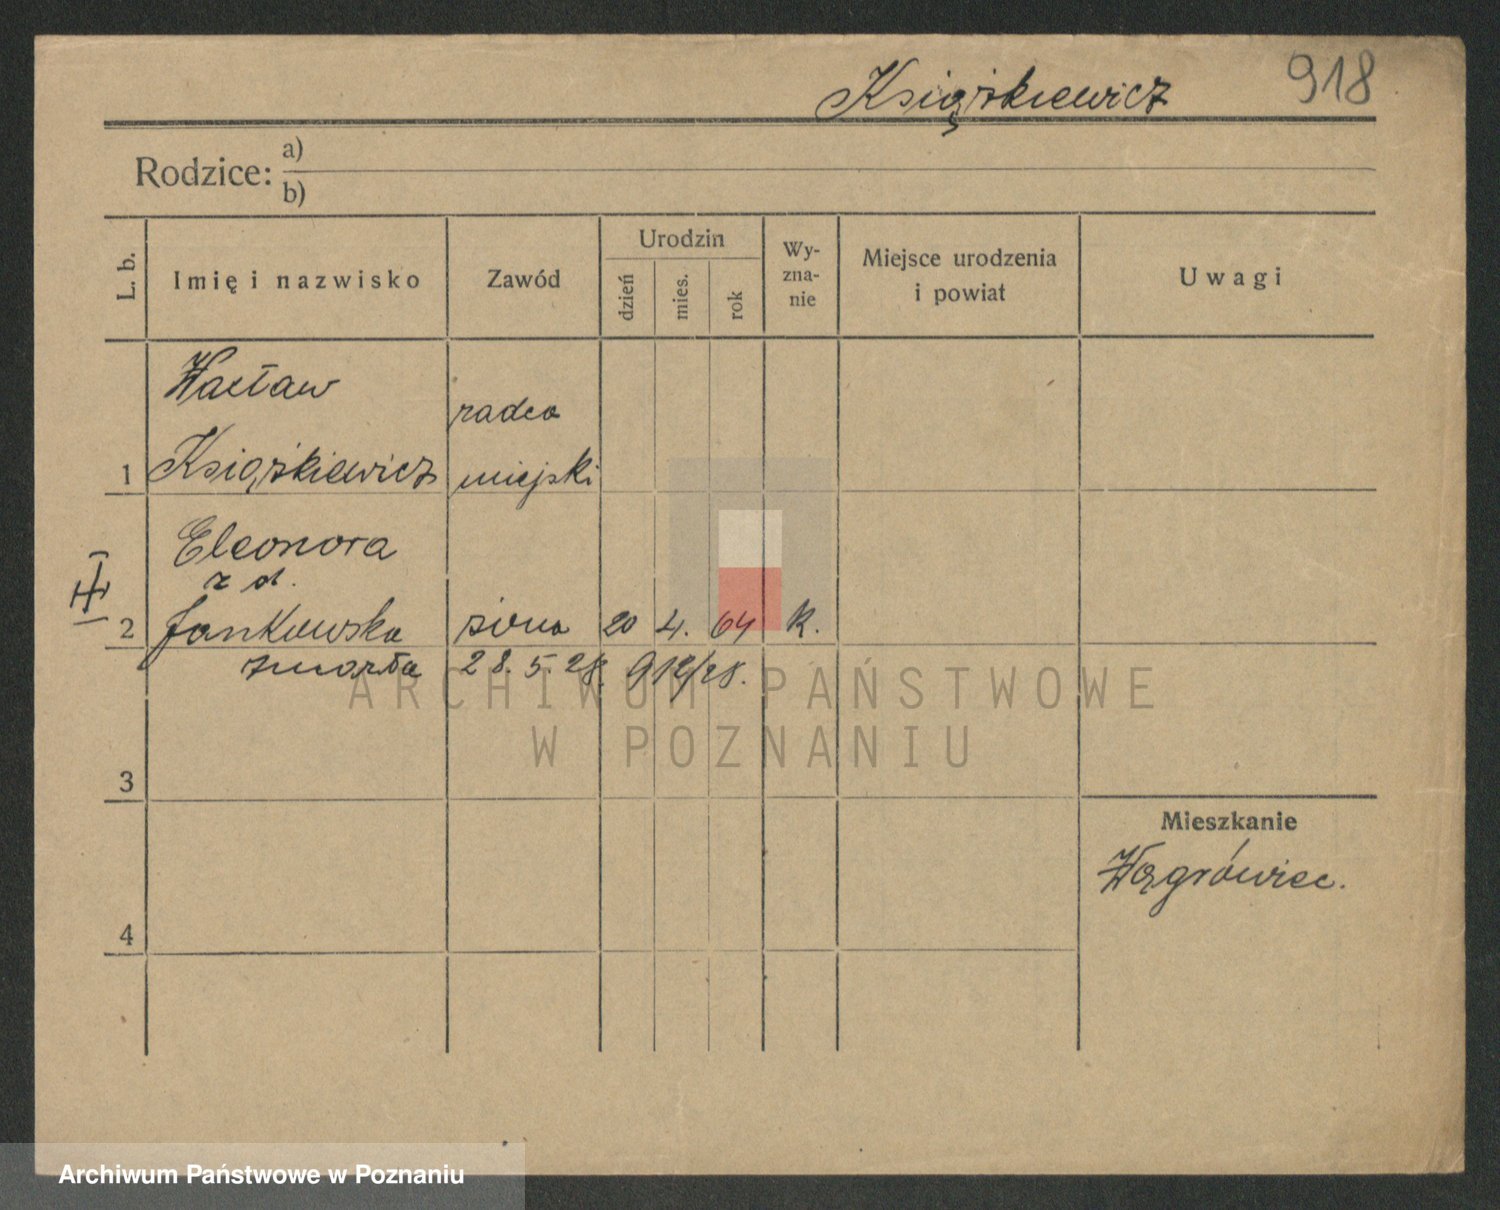 Książkiewicz 918
Rodzice: a)
b)
L. b.
Imię i nazwisko
Zawód
Urodzin
dzień
mies.
rok
Wy-
zna-
nie
Miejsce urodzenia
i powiat
Uwagi
Wacław
radca
1 Książkiewicz miejski
Eleonora
z d.
2 Jankowska żona 20 4. 64 k.
zmarła 28. 5. 28. 912/28.
3
4
Mieszkanie
Wągrówiec.
ARCHIWUM PAŃSTWOWE
W POZNANIU
Archiwum Państwowe w Poznaniu